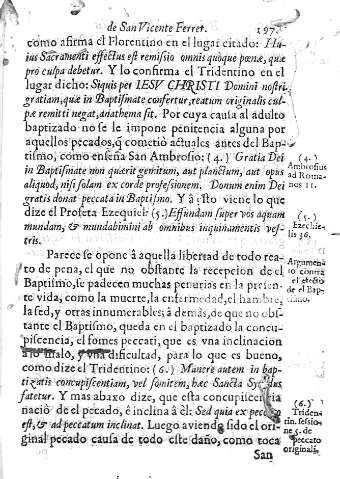 de San Vicente Ferrer. 197.
como afirma el Florentino en el lugar citado: Hu-
ius Sacramenti effectus est remissio omnis quoque pœnæ, quæ
pro culpa debetur. Y lo confirma el Tridentino en el
lugar dicho: Siquis per IESV CHRISTI Domini nostri
gratiam, quæ in Baptismate confertur, reatum originalis cul-
pæ remitti negat, anathema sit. Por cuya causa al adulto
baptizado no se le impone penitencia alguna por
aquellos pecados, q̃ cometiò actuales antes del Bap-
tismo, como enseña San Ambrosio: (4.) Gratia Dei
in Baptismate non quærit gemitum, aut planctum, aut opus
aliquod, nisi solam ex corde professionem. Donum enim Dei
gratis donat peccata in Baptismo. Y à esto viene lo que
dize el Profeta Ezequiel: (5.) Effundam super vos aquam
mundam, & mundabimini ab omnibus inquinamentis ves-
tris.
(4.)
Ambrosius
ad Roma-
nos 11.
(5.)
Ezechie-
lis 36.
Parece se opone à aquella libertad de todo rea-
to de pena, el que no obstante la recepcion de el
Baptismo, se padecen muchas penurias en la presen-
te vida, como la muerte, la enfermedad, el hambre,
la sed, y otras innumerables; à demàs, de que no obs-
tante el Baptismo, queda en el baptizado la concu-
piscencia, el fomes peccati, que es vna inclinacion
à lo malo, y vna dificultad, para lo que es bueno,
como dize el Tridentino: (6.) Manere autem in bap-
tizatis concupiscentiam, vel fomitem, hæc Sancta Synodus
fatetur. Y mas abaxo dize, que esta concupiscencia
naciò de el pecado, è inclina à èl: Sed quia ex peccato
est, & ad peccatum inclinat. Luego aviendo sido el ori-
ginal pecado causa de todo este daño, como toca
Argumen-
to contra
el efecto
de el Bap-
tismo.
(6.)
Triden-
tin. sessio-
ne 5. de
peccato
originali.
San